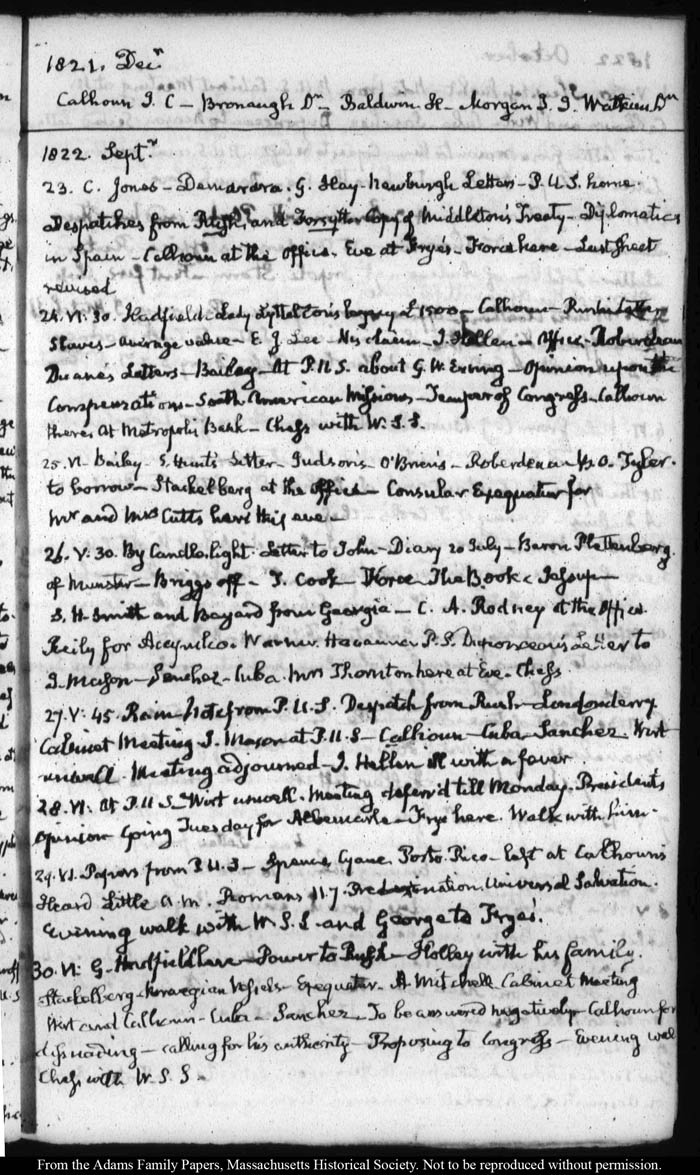 1821. Decr
Calhoun J. C – Bronaugh Dr – Baldwin H – Morgan J. J. Watkins Dr
1822. Septr
23. C. Jones – G. Hay – Newburgh Letters – P.U.S. home.
Despatches from Rush, and Forsyth Copy of Middleton's Treaty – Diplomatics
in Spain – Calhoun at the office. Eve at Frye's – Force here – Last Sheet
revised
24. VI: 30. Hadfield. Lady Lyttleton's legacy £1500 – Calhoun –
Slaves – average value – E. J. Lee – His claim – J. Hellen – Office – Roberdeau
Duane's Letters – Bailey – At P.U.S. about G. W. Erving – Opinion upon the
Compensations – South American Missions – Temper of Congress. Calhoun
there. At Metropolis Bank – Chess with W.S.S.
25. VI. Bailey – S. Hunt's Letter – Judson's – O'Brien's – Roberdeau Tyler.
to borrow – Stackelberg at the office – Consular Exequatur for
Mr and Mrs Cutts here this eve –
26. V: 30. By Candle-light – Letter to John – Diary 20 July – Baron Plettenberg
of Munster – Briggs off – J. Cook – Force – The Book & Jessup –
S. H. Smith and Bayard from Georgia – C. A. Rodney at the Office.
Reily for Acapulco. Warner. Havanna P.S. Duponceau's Letter to
J. Mason – Sanchez – Cuba. Mrs Thornton here at Eve. Chess
27. V: 45. Rain – Note from P.U.S. Despatch from Rush – Londonderry
Cabinet Meeting J. Mason at P.U.S – Calhoun – Cuba – Sanchez. Wirt
unwell. Meeting adjourned – J. Hellen ill with a fever.
28. VI: At P.U.S – Wirt unwell. Meeting deferr'd till Monday. President's
opinion Going Tuesday for Albemarle – Frye here. Walk with him.
29. VI. Papers from P.U.S – Spence Cyane. Porto-Rico – left at Calhoun's
Heard Little A.M. Romans 11.7. Predestination. Universal Salvation.
Evening walk with W.S.S. and George to Frye's.
30. VI: G. Hadfield here – Power to Rush – Holley with his family.
Stackelberg – Norwegian Vessels – Exequatur – A. Mitchell. Cabinet Meeting
Wirt and Calhoun – Cuba – Sanchez – To be answered negatively – Calhoun for
dissuading – calling for his authority – Proposing to Congress – Evening
Chess with W.S.S –
From the Adams Family Papers, Massachusetts Historical Society. Not to be reproduced without permission.